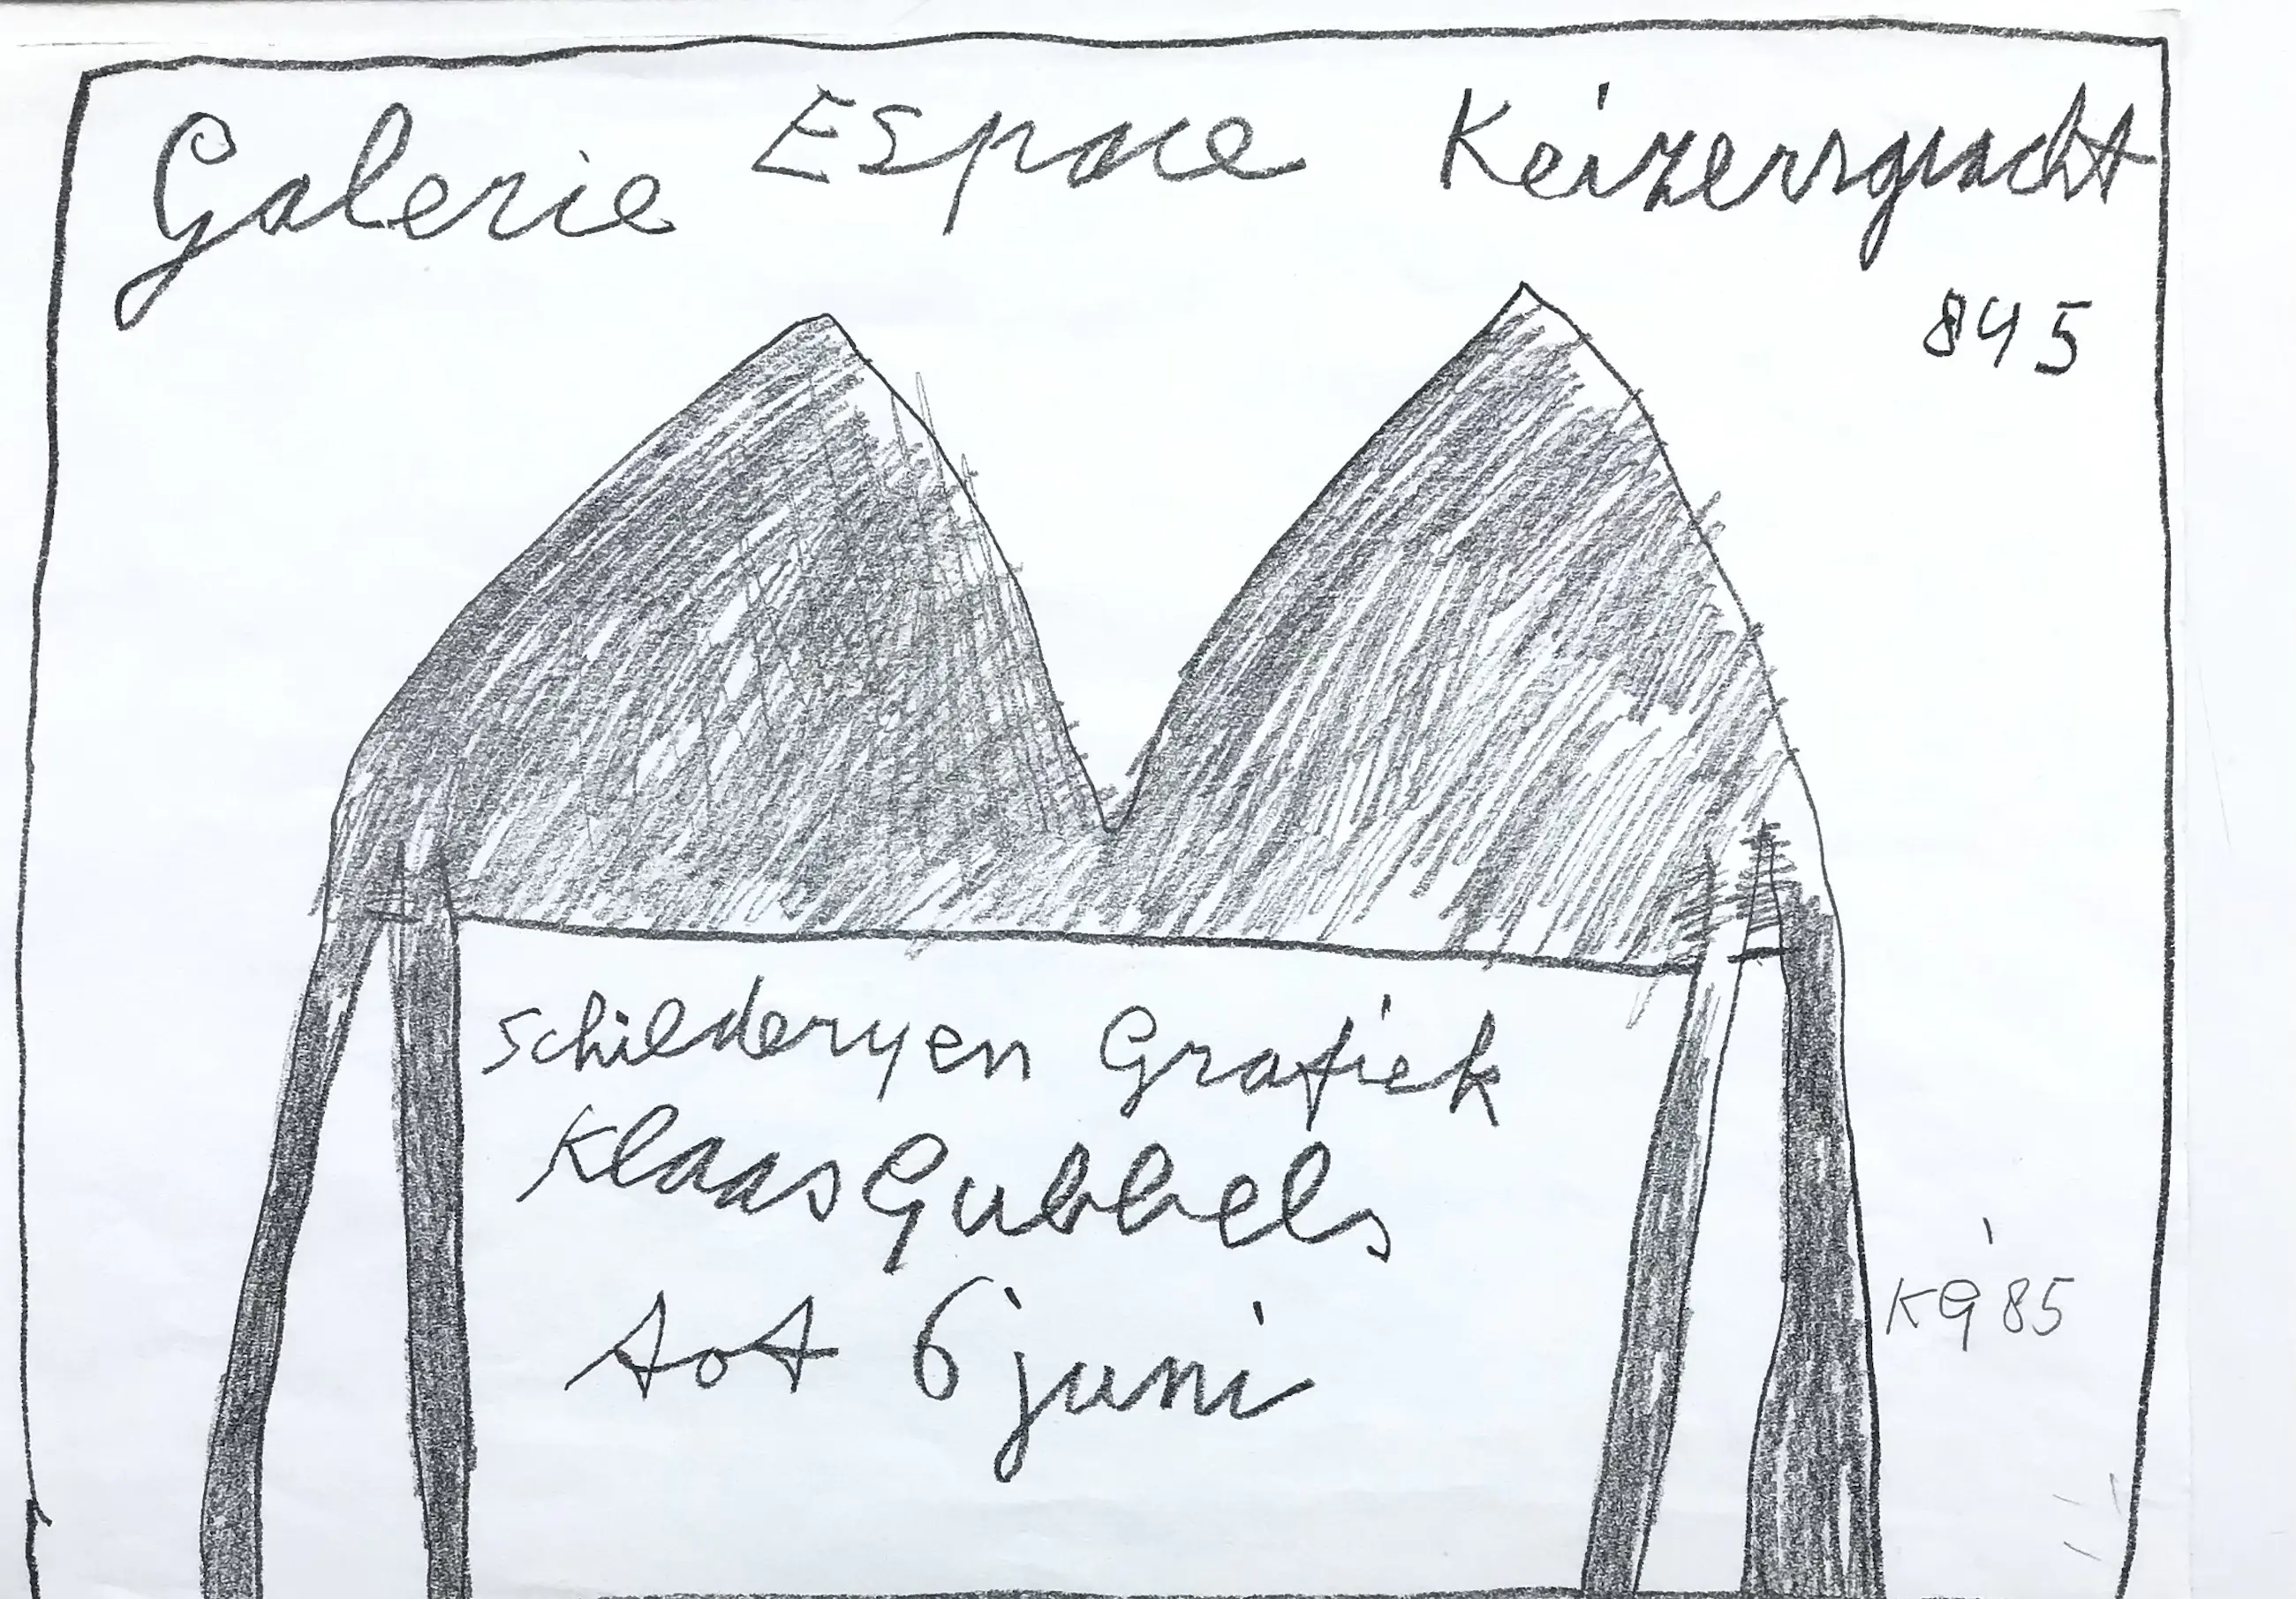 Galerie Espace Keizersgracht
845
Schilderyen Grafiek
Klaas Gubbels
tot 6 juni
KG '85